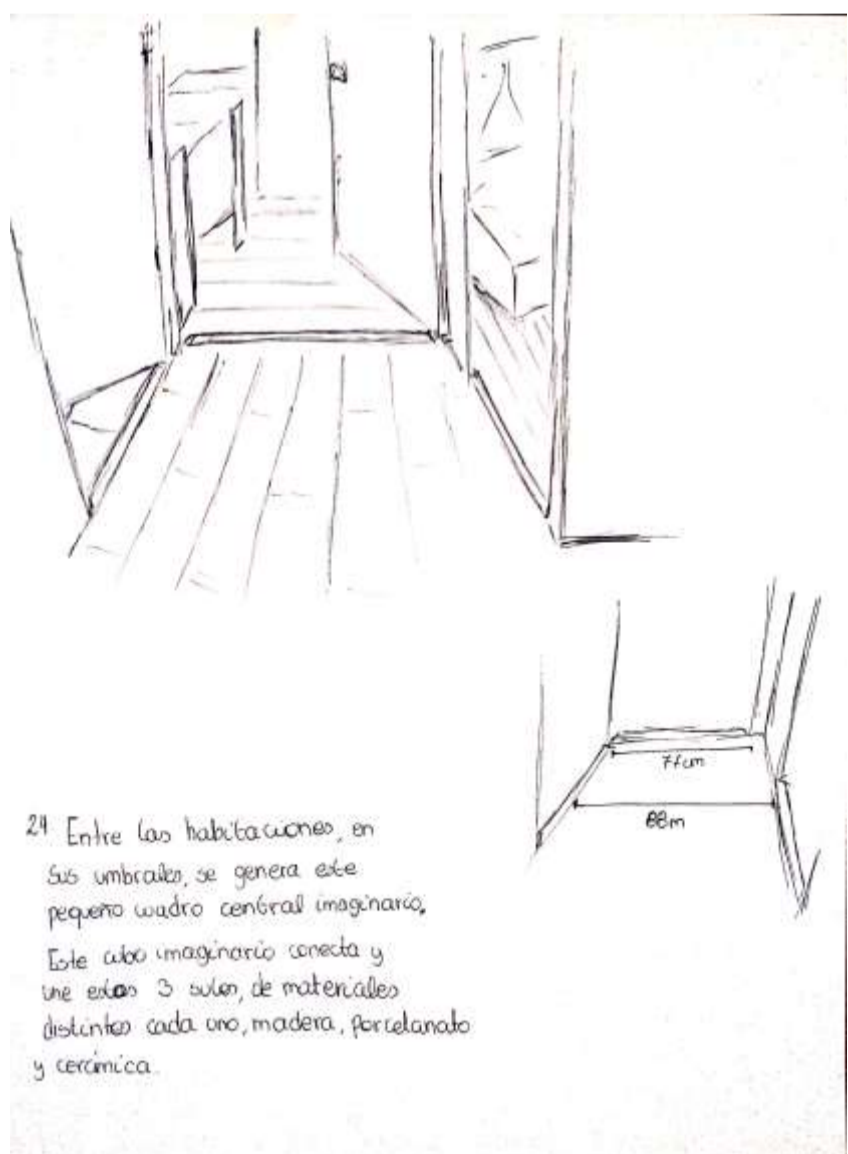 77cm
88m
24 Entre las habitaciones, en
sus umbrales, se genera este
pequeño cuadro central imaginario.
Este cubo imaginario conecta y
une estos 3 suelos, de materiales
distintos cada uno, madera, porcelanato
y cerámica.